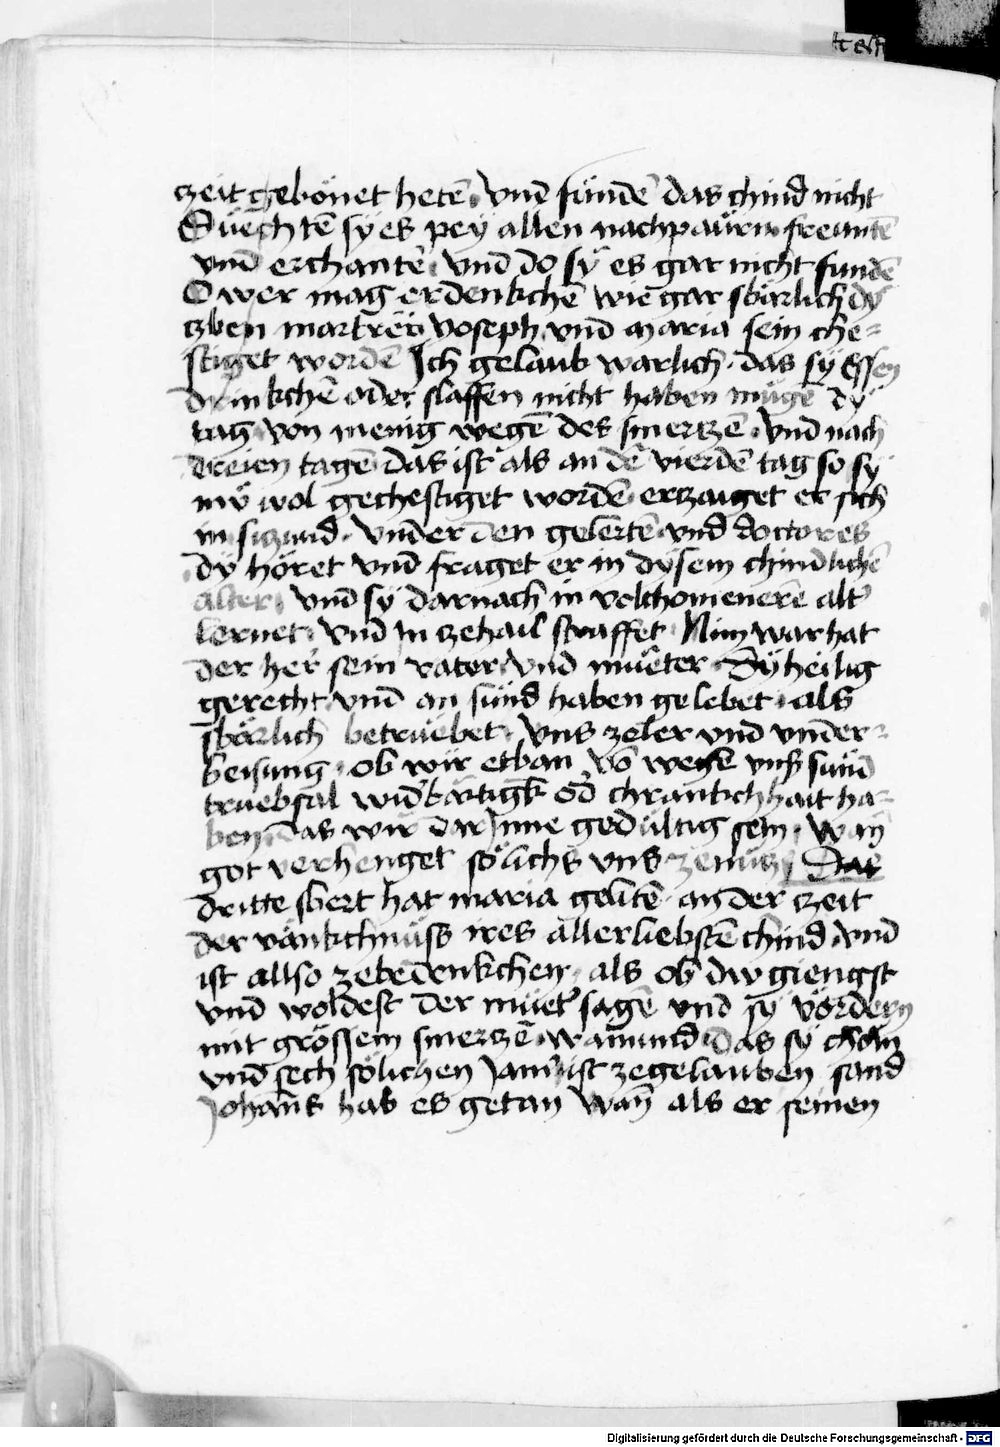 zeit gebönet hetē Vnd fündē das chind nicht
Süechtē sy es pey allen nachpaurn freuntē
vnd erchantē Vnd do sy es gar nicht fundē
O wer mag erdenkchē wie gar sbärlich dy
zben martrër Yoseph vnd maria sein che=
stiget wordē Ich gelaub warlich das sy Essen
drinkchē oder slaffen nicht haben mügē dy
tag von menig wegē des smerczē Vnd nach
dreien tagē das ist als an dē vierdē tag so sy
nw wol gechestiget wordē erzaiget er sich
in siczund vnder den gelertē vnd doctores
dy höret vnd fraget er in dysem chindlichē
alter Vnd sy darnach in volchomenerē alt'
lernet Vnd in zehail straffet Nim war hat
der her sein vater vnd mueter Dy heilig
gerecht vnd an sünd haben gelebet als
sbärlich betruebet Vns zeler vnd vnder=
beisung ob wir etban vō wegē vnser sünd
truebsal widbärtigk od chrankchhait ha=
ben das wir dar Inne gedultig sein Wan
got verhenget sölichs vns zenucz Das
dritte sbert hat maria gelitē an der zeit
der vänkchnüss ires allerliebstē chind vnd
ist allso zebedenkchen als ob dw giengst
vnd woldest der müet' sagē vnd sy vördern
mit grössem smerczē wainund das sy chöm
vnd sech sölichen Jam' ist zegelauben sand
Johans hab es getan Wan als er seinen
Digitalisierung gefördert durch die Deutsche Forschungsgemeinschaft - DFG